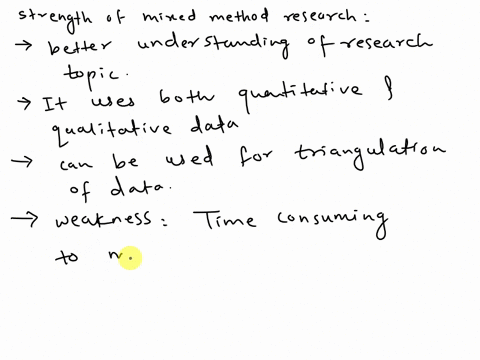 strength of mixed method research:
→ better understanding of research
topic.
→ It uses both quantitative &
qualitative data
→ can be used for triangulation
of data.
→ weakness: Time consuming
to